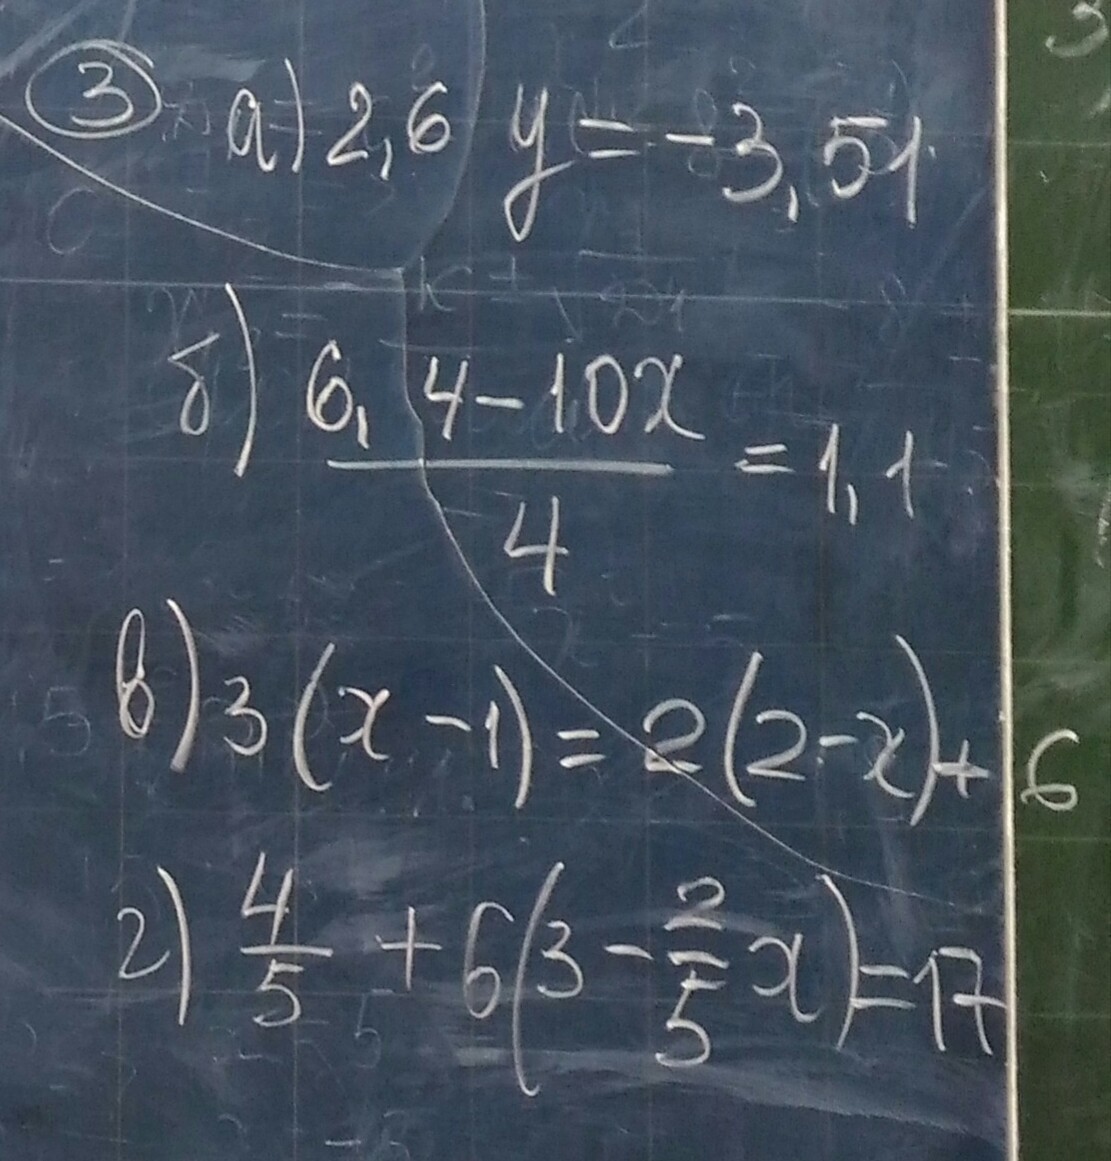 ③ а) 2,6 y = -3,51
б) (6,4 - 10x)/4 = 1,1
в) 3(x - 1) = 2(2 - x) + 6
г) 4/5 + 6(3 - 2/5 x) = 17